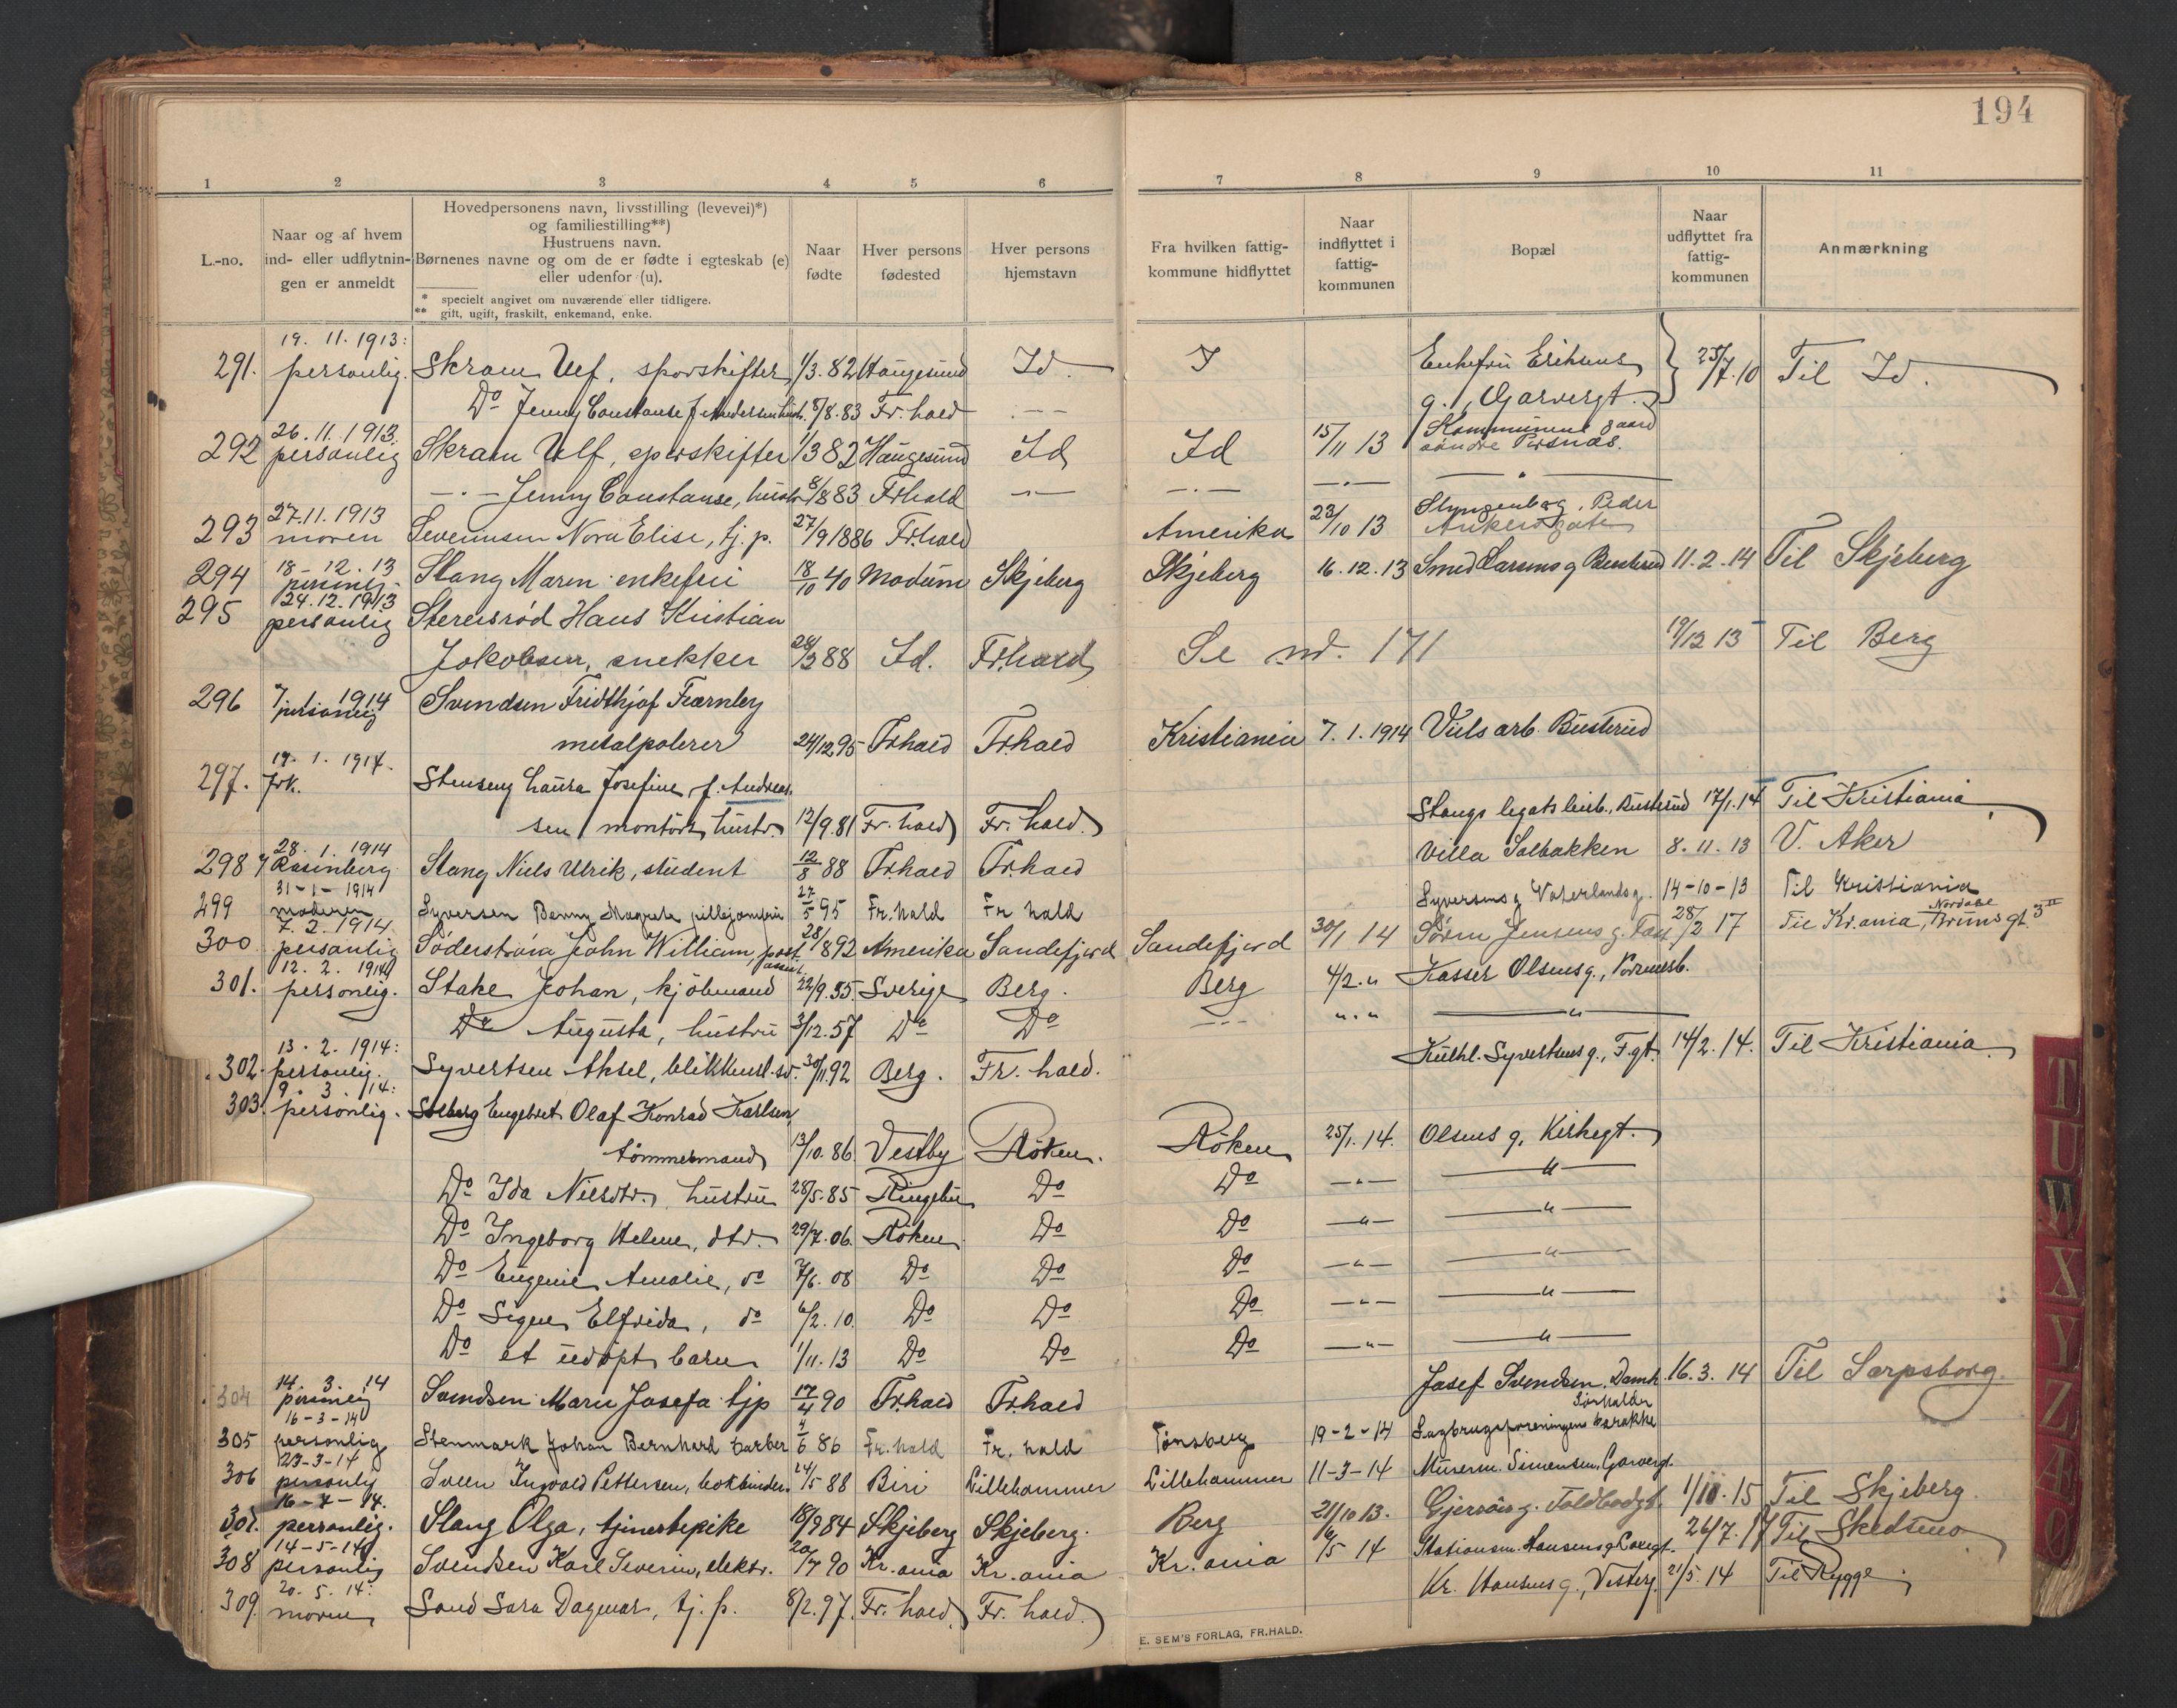 194
1 2 3 4 5 6 7 8 9 10 11
L.-no.
Naar og af hvem
ind- eller udflytnin-
gen er anmeldt
Hovedpersonens navn, livsstilling (levevei)*)
og familiestilling**)
Hustruens navn.
Børnenes navne og om de er fødte i egteskab (e)
eller udenfor (u).
* specielt angivet om nuværende eller tidligere.
** gift, ugift, fraskilt, enkemand, enke.
Naar
fødte
Hver persons
fødested
Hver persons
hjemstavn
Fra hvilken fattig-
kommune hidflyttet
Naar
indflyttet i
fattig-
kommunen
Bopæl
Naar
udflyttet fra
fattig-
kommunen
Anmærkning
19. 11. 1913:
291. personlig. Skram Ulf, sporskifter 1/3.82 Haugesund Id. I Enkefru Eriksens 25/7.10 Til Id.
Do Jenny Constanse f. Andersen hustr. 8/8.83 Fr.hald -"- g., Garvergt.
26.11.1913. Kommunens gaard
292 personlig Skram Ulf, sporskifter 1/3 82 Haugesund Id Id 15/11 13 søndre Pisnæs.
-"- Jenny Constanse, hustr 8/8 83 Frhald -"- -"- -"- -"-
27.11.1913 Peder
293 moren Severinsen Nora Elise, tj. p. 27/9 1886 Fr.hald Amerika 23/10 13 Ankersgate
18-12.13
294 personlig. Stang Maren enkefru 18/10 40 Modum Skjeberg Skjeberg 16.12.13 Smed Larsens g Busterud 11.2.14 Til Skjeberg
24.12.1913
295 personlig Stereisrød Hans Kristian
Jakobsen, snekker 28/3 88 Id. Fr.hald Se no. 171 19/12 13 Til Berg
296 7/1 1914 Svendsen Fridthjof Fearnley
personlig
metalpolerer 24/12 95 Frhald Fr.hald Kristiania 7.1.1914 Viuls arb. Busterud
19. 1. 1914.
297. Frk. Stenseng Laura Josefine, f. Andreas-
sen montørs hustr. 12/9.81 Fr.hald Fr.hald. Stangs legats leirb., Busterud 17/1.14 Til Kristiania
28. 1. 1914
298 Rosenberg Stang Niels Ulrik, student 12/8 88 Fr.hald Fr.hald Villa Solbakken 8.11.13 V. Aker
31-1-1914
299 moderen Syversen Benny Magrete pillejomfru 27/5 95 Fr.hald Fr hald Syversens g Vaterlandsg. 14-10-13 Til Kristiania
7.2.1914 Nordahl
300 personlig Söderström John William, post 28/1 892 Amerika Sandefjord Sandefjord 30/1 14 Sören Jensens g. 28/2 17 Til Kr.ania, Brunsgt 3 II
assist.
12. 2. 1914
301. personlig. Stake Johan, kjöbmand 22/9.55. Sverige Berg. Berg 4/2." Kasser Olsens g.,
Do Augusta, hustru 3/12.57 Do Do -"- "." -"-
13. 2. 1914:
302. personlig. Syvertsen Aksel, blikkensl.sv. 30/11.92 Berg. Fr.hald. Kulhl. Syvertsens g., F.gt. 14/2.14. Til Kristiania
9. 3. 14:
303. personlig. Solberg Engebret Olaf Konrad Karlsen,
tømmermand 13/10.86. Vestby Röken. Röken 25/1.14. Olsens g, Kirkegt.
Do Ida Nielsdtr. hustru 28/5.85 Ringebu Do Do -"- -"-
Do Ingeborg Helene, dtr. 29/7.06. Röken Do Do -"- -"-
Do Eugenie Amalie, do 7/6.08 Do Do Do -"- -"-
Do Signe Elfrida, do 6/2.10. Do Do Do -"- -"-
Do et udöpt barn 1/11.13 Do Do Do -"- -"-
14. 3. 14
304 personlig Svendsen Marie Josefa tjp 17/4 90 Fr.hald Fr.hald Josef Svendsen, Damh. 16.3.14 Til Sarpsborg.
16-3-14
305 personlig Stenmark Johan Bernhard barber 4/6 86 Fr.hald Fr.hald Tønsberg 19-2-14 Sagbrugsforeningens barakke
23-3-14
306 personlig Sveen Ingvald Pettersen, bokbinder. 24/5 88 Biri Lillehammer Lillehammer 11-3-14 Murerm. Simensen, Garvergt.
16-4-14.
307. personlig. Stang Olga, tjenestepike 18/9 84 Skjeberg Skjeberg. Berg 21/10 13. Gjersöes g. Toldbodgt. 1/10.15 Til Skjeberg.
14-5-14
308 personlig Svendsen Karl Severin, elektr. 20/7 90 Kr.ania Kr.ania Kr.ania 6/5 14 Stationsm. Hansens g 26/7.17 Til Skedsmo
20. 5. 14.
309. moren Sand Sara Dagmar, tj. p. 8/2.97. Fr.hald Fr.hald. Kr. Hansens g., Vesterg. 21/5.14 Til Rygge
E. SEM'S FORLAG, FR.HALD.
T
U
W
X
Y
Z
Æ
Ø